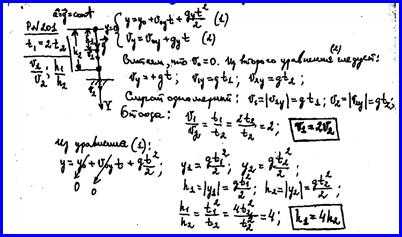 a⃗=g⃗=const
PN201
t₁=2t₂
v₁/v₂; h₁/h₂
y=0
Y
{ y=y₀+v₀yt+gyt²/2 (1)
vy=v₀y+gyt (2)
что v₀=0. Из второго уравнения (2) следует:
vy=+gt; v₁y=gt₁; v₂y=gt₂;
v₁=|v₁y|=gt₁; v₂=|v₂y|=gt₂;
v₁/v₂=t₁/t₂=2t₂/t₂=2; v₁=2v₂
Из уравнения (1):
y=y₀+v₀yt+gt²/2;
0 0
y₁=gt₁²/2; y₂=gt₂²/2;
h₁=|y₁|=gt₁²/2; h₂=|y₂|=gt₂²/2;
h₁/h₂=t₁²/t₂²=4t₂²/t₂²=4; h₁=4h₂